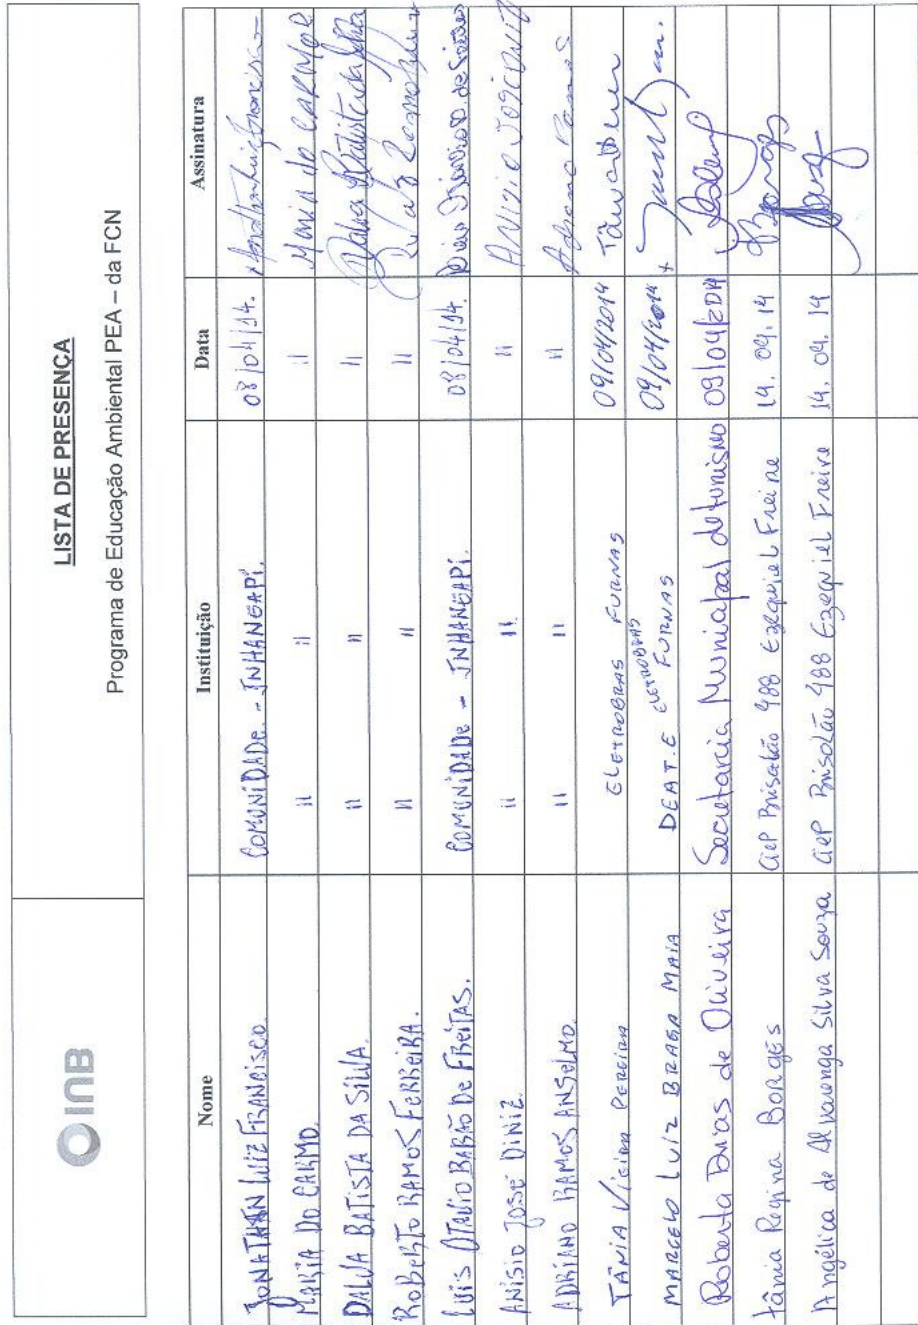 INB
LISTA DE PRESENÇA
Programa de Educação Ambiental PEA – da FCN
Nome Instituição Data Assinatura
JONATHAN LUIZ FRANCISCO. COMUNIDADE - INHANGAPÍ. 08/04/14.
MARIA DO CARMO. " " " Maria do CARMO
DALVA BATISTA DA SILVA. " " " Dalva Batista da Silva
ROBERTO RAMOS FERREIRA. " " "
LUIS OTAVIO BARÃO DE FREITAS. COMUNIDADE - INHANGAPÍ. 08/04/14.
ANÍSIO JOSÉ DINIZ. " " "
ADRIANO RAMOS ANSELMO. " " "
TÂNIA Vieira PEREIRA ELETROBRAS FURNAS 09/04/2014
MARCELO LUIZ BRAGA MAIA DEAT.E ELETROBRAS FURNAS 09/04/2014
Roberta Dias de Oliveira Secretaria Municipal de turismo 09/04/2014
Tânia Regina Borges CIEP Brisolão 488 Ezequiel Freire 14. 04. 14 Borges
Angélica de Alvarenga Silva Souza CIEP Brisolão 488 Ezequiel Freire 14. 04. 14